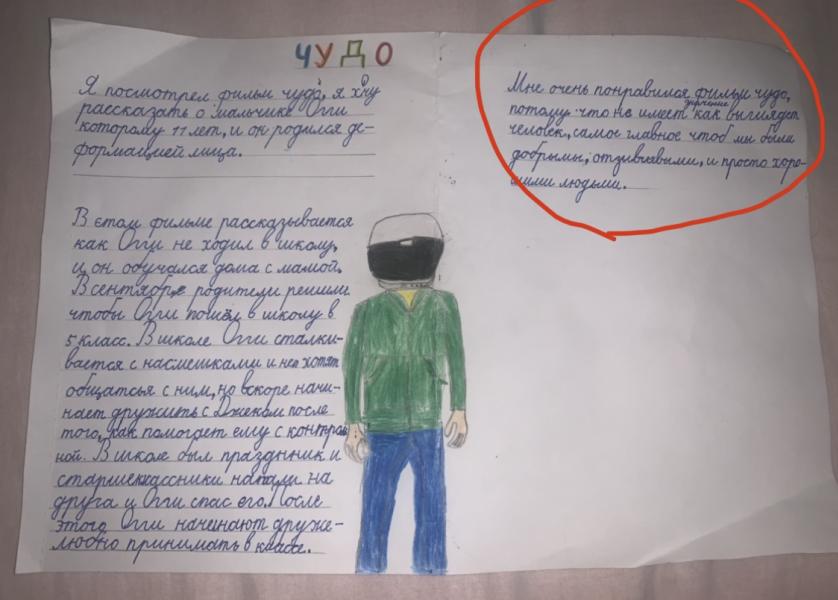 ЧУДО
Я посмотрел фильм чудо, я хочу
рассказать о мальчике Огги
которому 11 лет, и он родился де-
формацией лица.
В етом фильме рассказывается
как Огги не ходил в школу,
и он обучался дома с мамой.
В сентябре родители решили
чтобы Огги пошёл в школу в
5 класс. В школе Огги сталки-
вается с насмешками и не хотят
общаться с ним, но вскоре начи-
нает дружить с Джеком после
того, как помогает ему с контроль
ной. В школе был праздник и
старшеклассники напали на
друга и Огги спас его. После
этого Огги начинают друже-
любно принимать в классе.
Мне очень понравился фильм чудо,
потому что не имеет значение как выглядит
человек, самое главное чтоб мы были
добрымы, отзывчевыми, и просто хоро-
шими людьми.